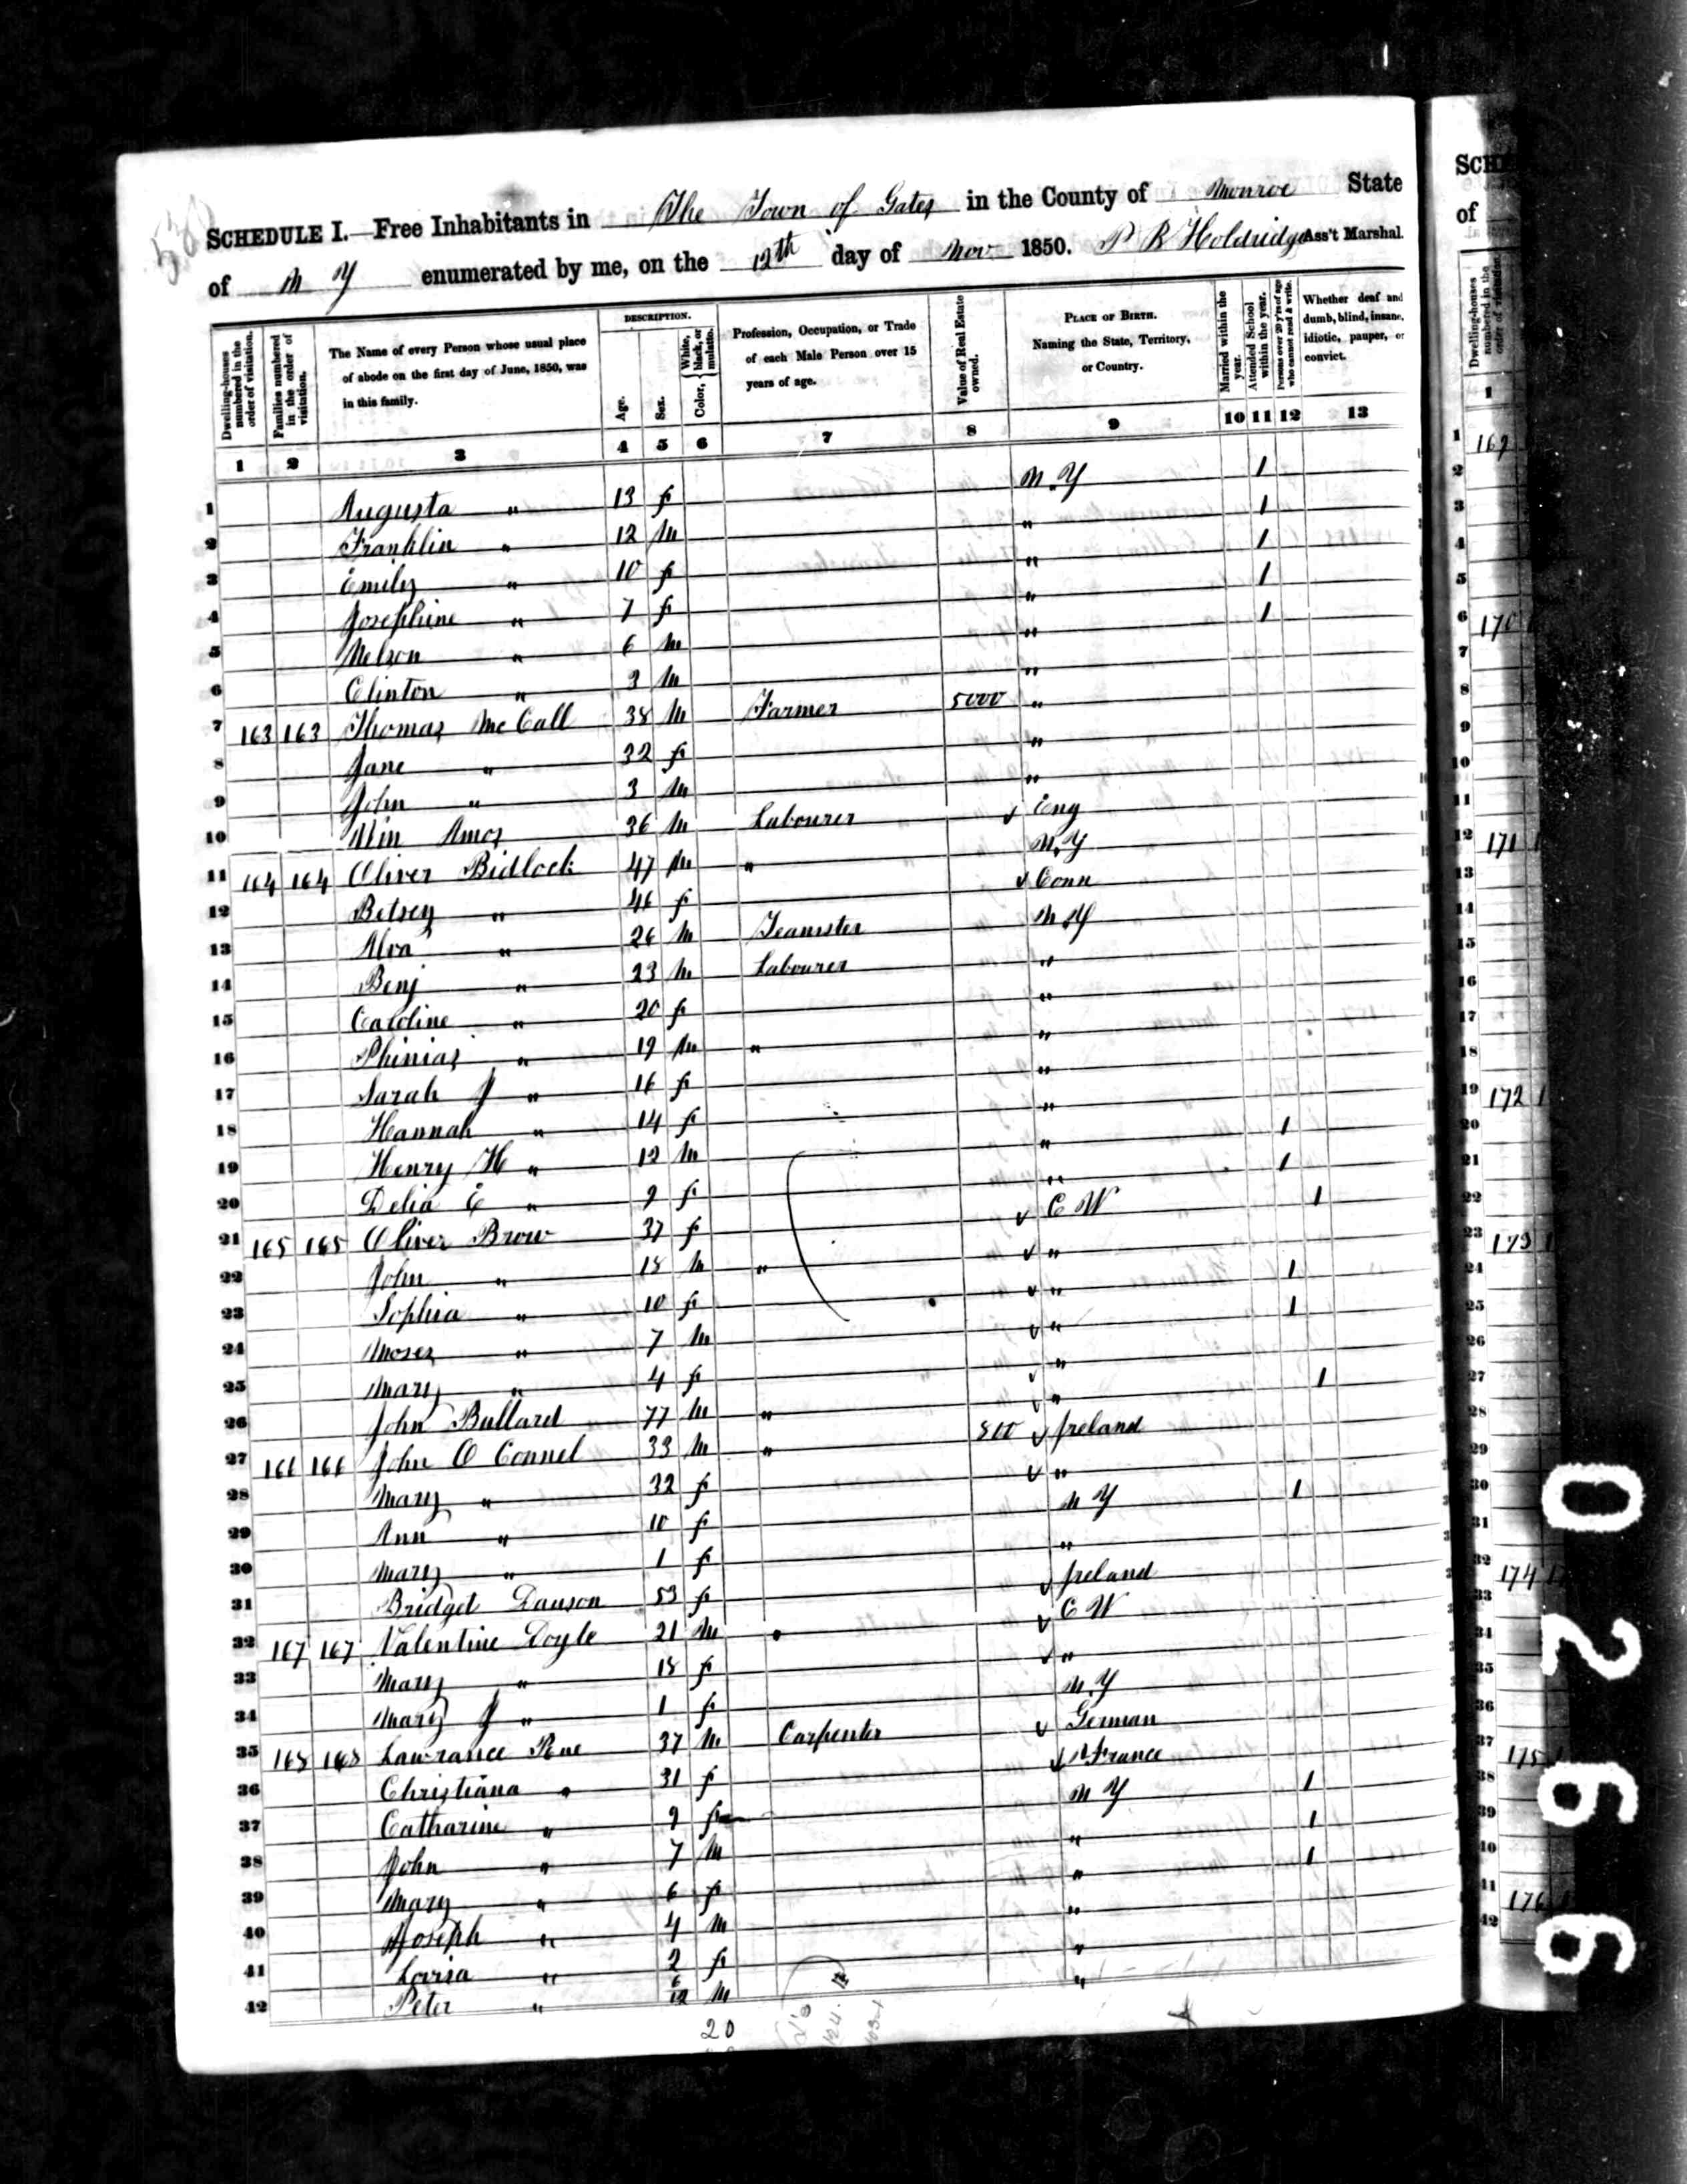 SCHEDULE I.—Free Inhabitants in The Town of Gates in the County of Monroe State
of N Y enumerated by me, on the 12th day of Nov 1850. P B Holdridge Ass't Marshal.
Dwelling-houses numbered in the order of visitation. Families numbered in the order of visitation. The Name of every Person whose usual place of abode on the first day of June, 1850, was in this family. DESCRIPTION. Age. Sex. Color, White, black, or mulatto. Profession, Occupation, or Trade of each Male Person over 15 years of age. Value of Real Estate owned. PLACE OF BIRTH. Naming the State, Territory, or Country. Married within the year. Attended School within the year. Persons over 20 y'rs of age who cannot read & write. Whether deaf and dumb, blind, insane, idiotic, pauper, or convict.
1 2 3 4 5 6 7 8 9 10 11 12 13
1 Augusta " 13 f N.Y 1
2 Franklin " 12 M " 1
3 Emily " 10 f " 1
4 Josephine " 7 f " 1
5 Nelson " 6 M " 1
6 Clinton " 3 M "
7 163 163 Thomas Mc Call 38 M Farmer 5000 "
8 Jane " 32 f "
9 John " 3 M "
10 Wm Amos 36 M Labourer Eng
11 164 164 Oliver Bidlock 47 M " N.Y
12 Betsey " 46 f Conn
13 Alva " 26 M Teamster N.Y
14 Benj " 23 M Labourer "
15 Caroline " 20 f "
16 Phinias " 19 M " "
17 Sarah J " 16 f "
18 Hannah " 14 f "
19 Henry H " 12 M " 1
20 Delia E " 9 f " 1
21 165 165 Oliver Brow 37 f C W 1
22 John " 18 M " "
23 Sophia " 10 f " 1
24 Moses " 7 M " 1
25 Mary " 4 f "
26 John Bullard 77 M " " 1
27 166 166 John O Connel 33 M " 800 Ireland
28 Mary " 32 f "
29 Ann " 10 f N Y 1
30 Mary " 1 f "
31 Bridget Dawson 53 f Ireland
32 167 167 Valentine Doyle 21 M " C W
33 Mary " 18 f "
34 Mary J " 1 f N.Y
35 168 168 Lawrance Rue 37 M Carpenter German
36 Christiana " 31 f France
37 Catharine " 9 f N Y 1
38 John " 7 M " 1
39 Mary " 6 f " 1
40 Joseph " 4 M "
41 Lovisa " 2 f "
42 Peter " 6/12 M "
20
SCHE
of
Dwelling-houses numbered in the order of visitation.
1
1 169
2
3
4
5
6 170
7
8
9
10
11
12 171
13
14
15
16
17
18
19 172
20
21
22
23 173
24
25
26
27
28
29
30
31
32 174
33
34
35
36
37 175
38
39
40
41 176
42
0266